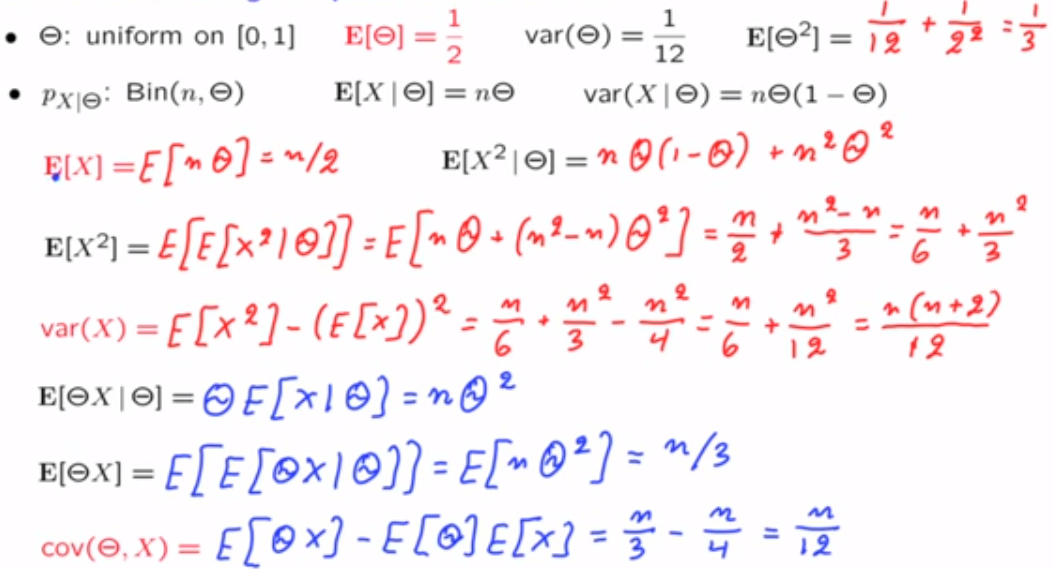 • Θ: uniform on [0, 1] E[Θ] = 1/2 var(Θ) = 1/12 E[Θ²] = 1/12 + 1/2² = 1/3
• p_{X|Θ}: Bin(n, Θ) E[X | Θ] = nΘ var(X | Θ) = nΘ(1 − Θ)
E[X] = E[nΘ] = n/2 E[X² | Θ] = nΘ(1-Θ) + n²Θ²
E[X²] = E[E[X²|Θ]] = E[nΘ + (n²-n)Θ²] = n/2 + (n²-n)/3 = n/6 + n²/3
var(X) = E[X²] - (E[X])² = n/6 + n²/3 - n²/4 = n/6 + n²/12 = n(n+2)/12
E[ΘX | Θ] = ΘE[X|Θ] = nΘ²
E[ΘX] = E[E[ΘX|Θ]] = E[nΘ²] = n/3
cov(Θ, X) = E[ΘX] - E[Θ]E[X] = n/3 - n/4 = n/12